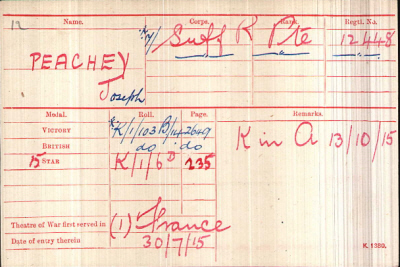 Name. Corps. Rank. Regtl. No.
7/ Suff R Pte 12448
PEACHEY
Joseph
Medal. Roll. Page. Remarks.
VICTORY K/1/103 B/14 2649
BRITISH do do
15 STAR K/1/6 D 235
K in A 13/10/15
Theatre of War first served in (1) France
Date of entry therein 30/7/15
K. 1380.